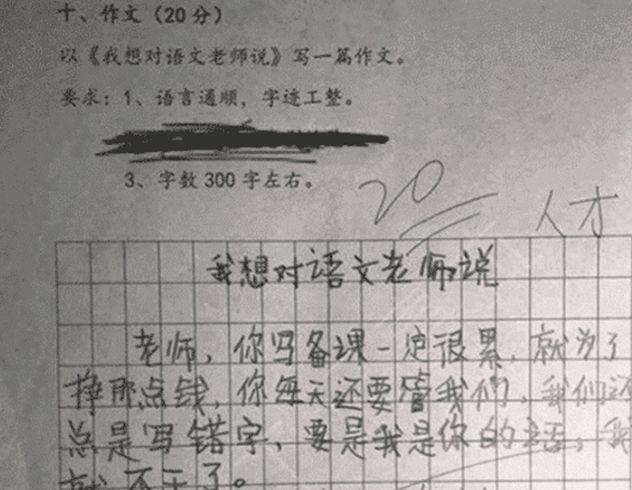 十、作文（20分）
以《我想对语文老师说》写一篇作文。
要求：1、语言通顺，字迹工整。
3、字数 300 字左右。
20
人才
我想对语文老师说
老师，你写备课一定很累，就为了
挣那点钱，你每天还要管我们，我们还
总是写错字，要是我是你的话，我
就不干了。